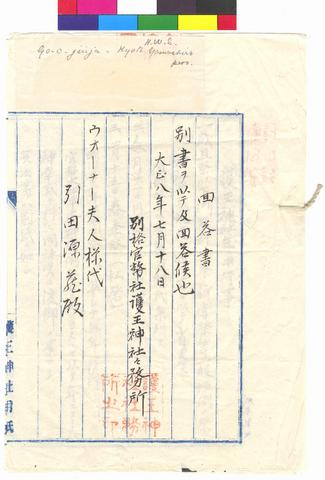 H.W.G.
Go-o-jinja - Kyoto Yamashiro prov.
回答書
別書ヲ以テ及回答候也
大正八年七月十八日
別格官幣社護王神社々務所
護王神
社社務
所之印
ウオーナー夫人様代
引田源蔵殿
護王神社用紙